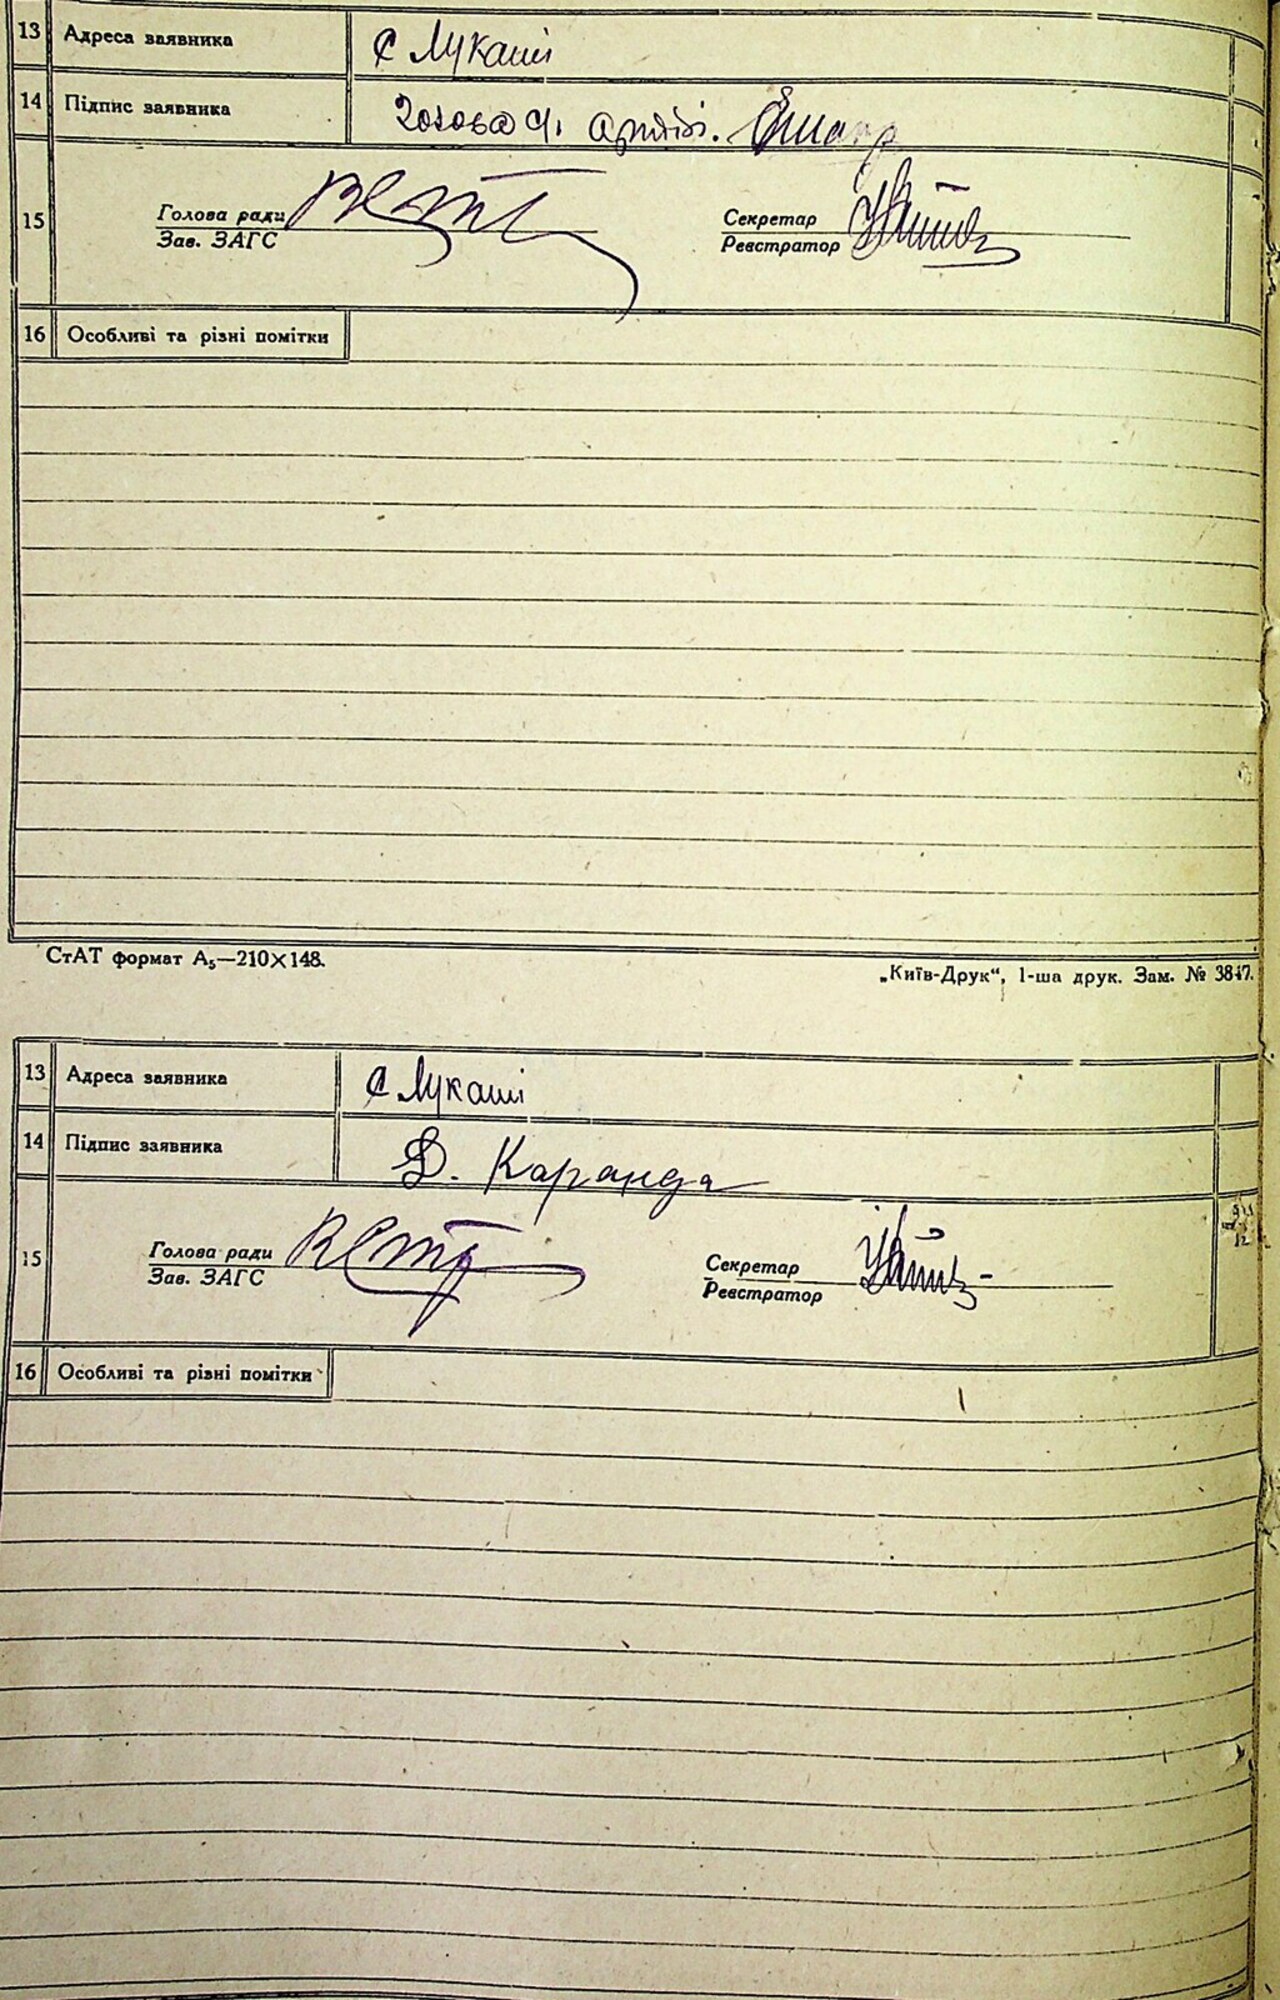 13 Адреса заявника с Лукаші
14 Підпис заявника голова с/г артілі.
15 Голова ради Секретар
Зав. ЗАГС Реєстратор
16 Особливі та різні помітки
СтАТ формат А₅—210×148.
„Київ-Друк“, 1-ша друк. Зам. № 3847.
13 Адреса заявника с Лукаші
14 Підпис заявника Д. Каранда
15 Голова ради Секретар
Зав. ЗАГС Реєстратор
16 Особливі та різні помітки